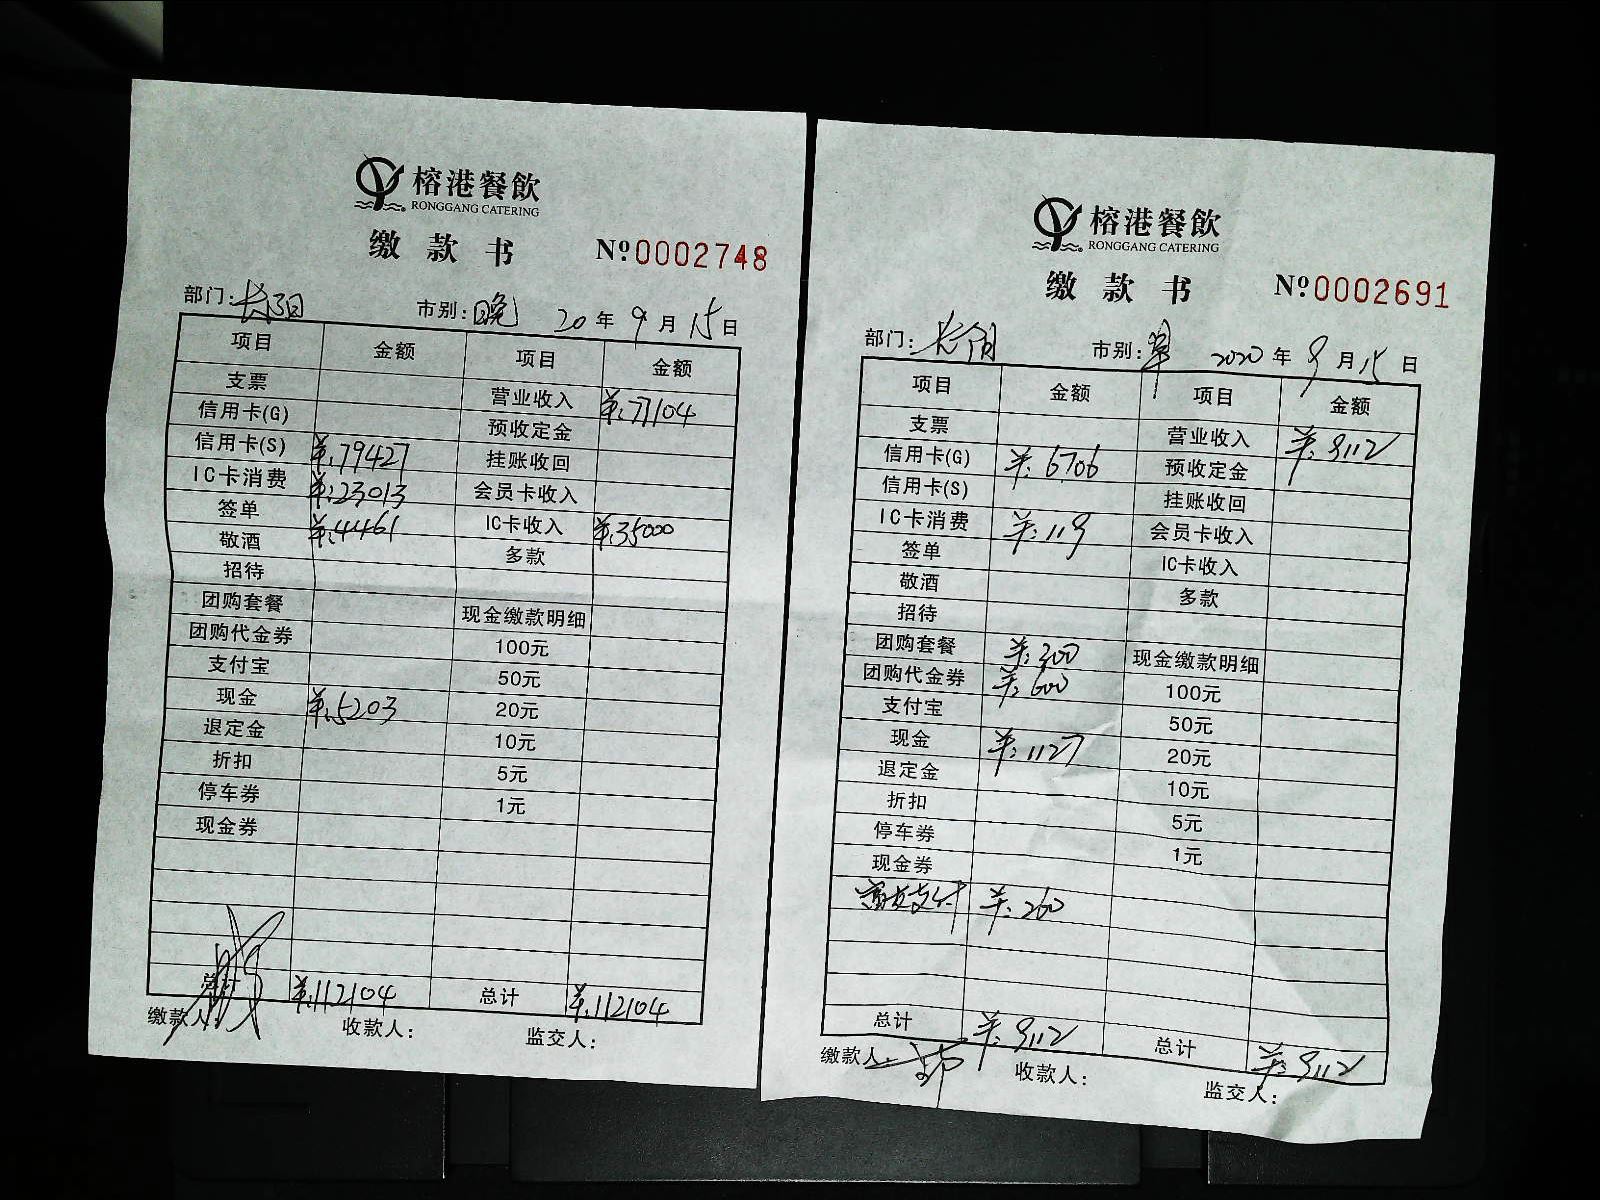 榕港餐飲
RONGGANG CATERING
缴款书 №0002748
部门: 市别:晚 20年9月15日
项目 金额 项目 金额
支票 营业收入 ¥:77104
信用卡(G) 预收定金
信用卡(S) ¥:79427 挂账收回
IC卡消费 ¥:23013 会员卡收入
签单 ¥:4461 IC卡收入 ¥:35000
敬酒 多款
招待
团购套餐 现金缴款明细
团购代金券 100元
支付宝 50元
现金 ¥:5203 20元
退定金 10元
折扣 5元
停车券 1元
现金券
总计 ¥:112104 总计 ¥:112104
缴款人: 收款人: 监交人:
榕港餐飲
RONGGANG CATERING
缴款书 №0002691
部门: 市别:早 2020年9月15日
项目 金额 项目 金额
支票 营业收入 ¥:9112
信用卡(G) ¥:6706 预收定金
信用卡(S) 挂账收回
IC卡消费 ¥:119 会员卡收入
签单 IC卡收入
敬酒 多款
招待
团购套餐 ¥:300 现金缴款明细
团购代金券 ¥:600 100元
支付宝 50元
现金 ¥:1127 20元
退定金 10元
折扣 5元
停车券 1元
现金券
支付 ¥:260
总计 ¥:9112 总计 ¥:9112
缴款人: 收款人: 监交人: